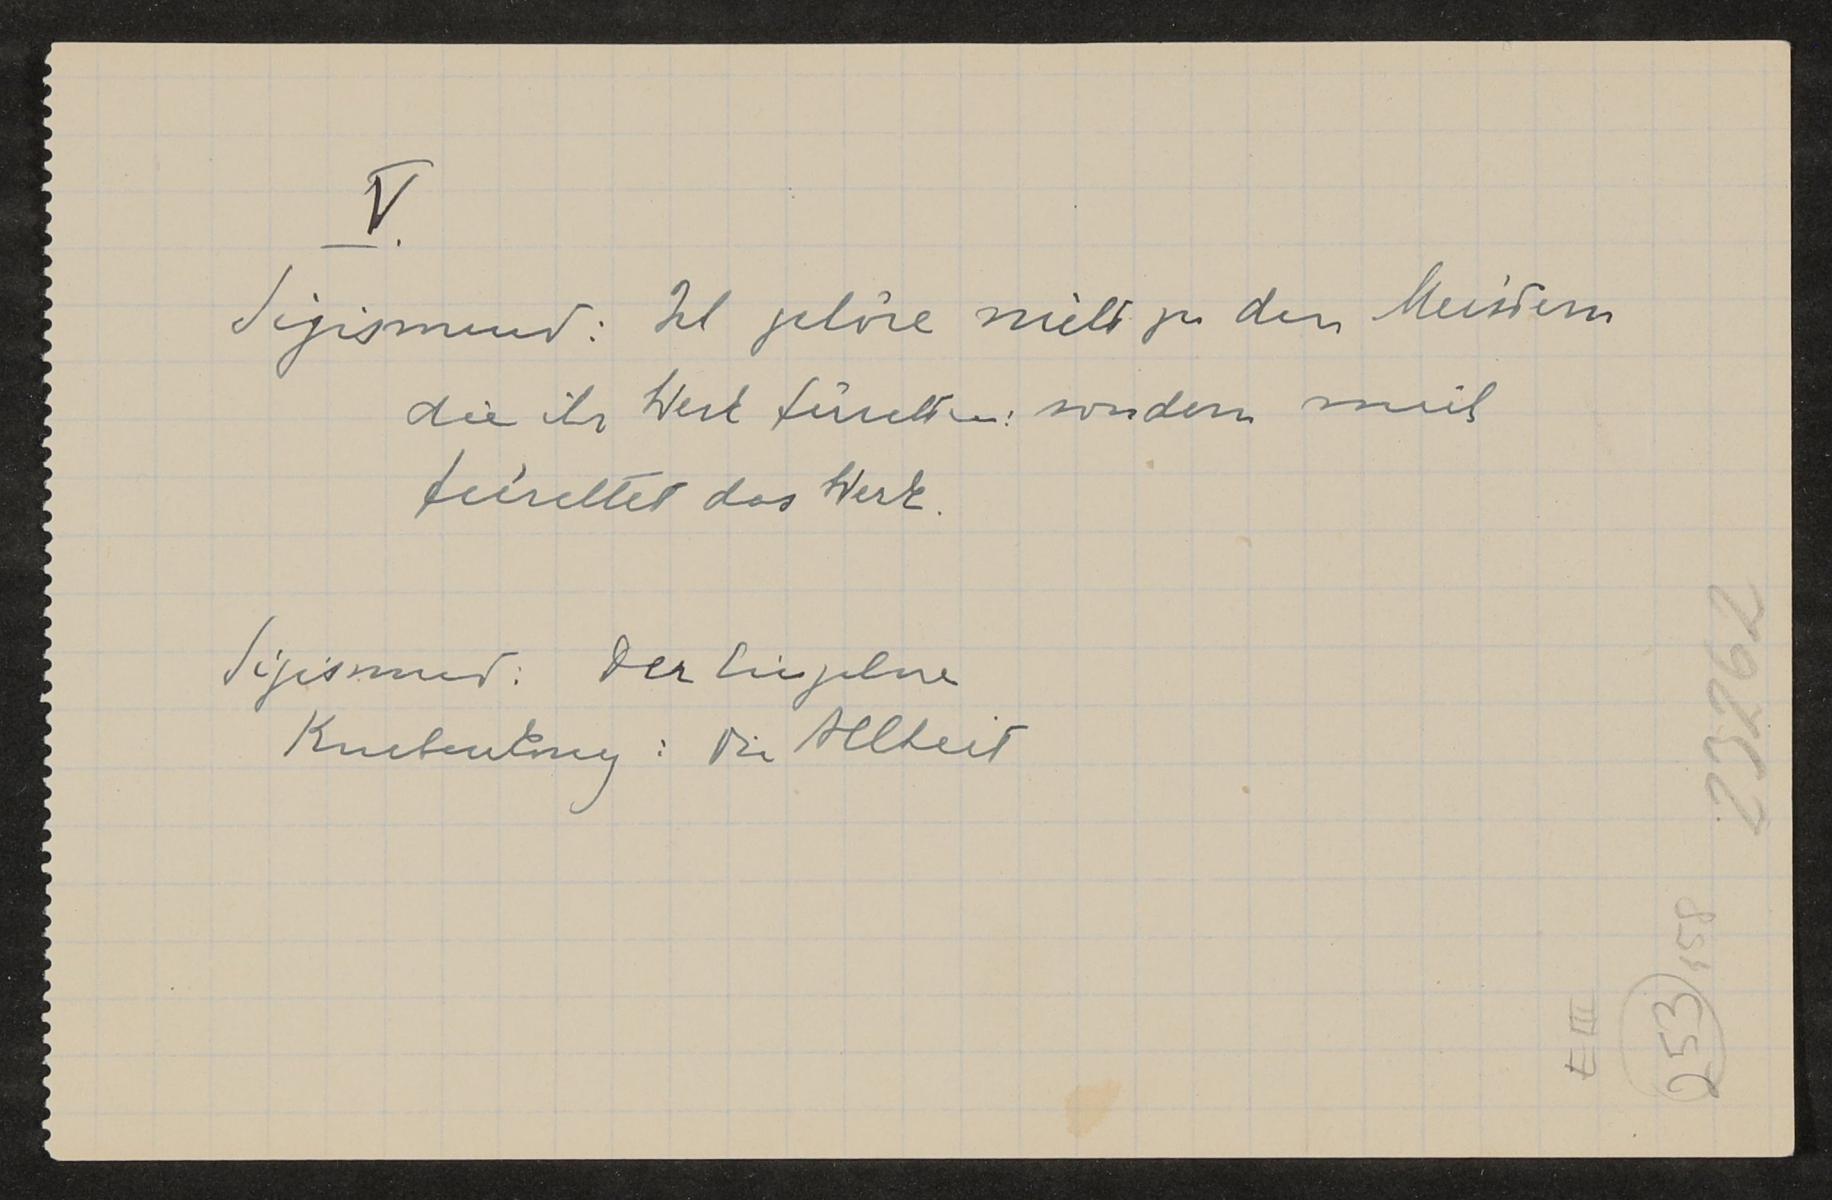 V.
Sigismund: Ich gehöre nicht zu den Meistern
die ihr Werk fürchten: sondern mich
fürchtet das Werk.
Sigismund: Der Einzelne
Knabenkönig: Die Allheit
23262
E III
253 158